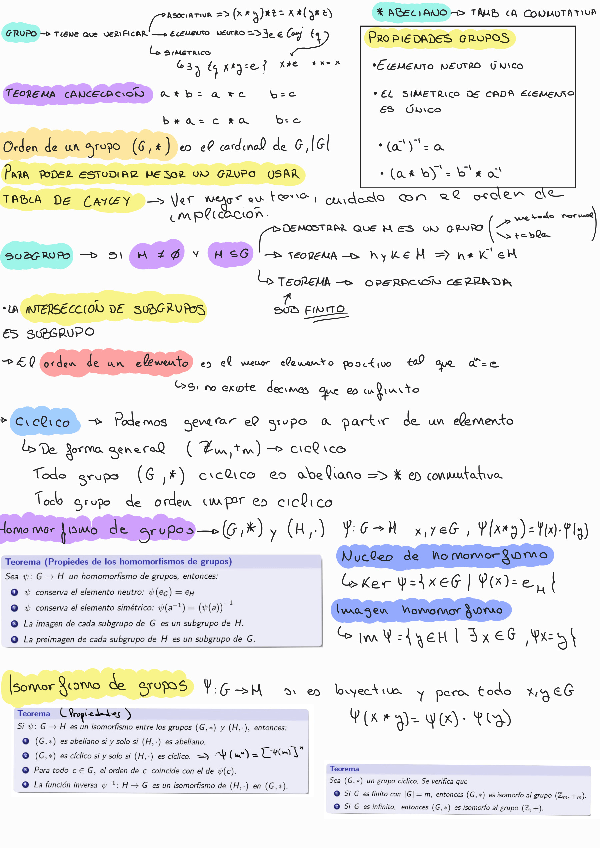 * ABELIANO → TAMB LA CONMUTATIVA
GRUPO → TIENE QUE VERIFICAR
→ ASOCIATIVA => (x*y)*z = x*(y*z)
→ ELEMENTO NEUTRO => ∃e ∈ Conj tq
→ SIMETRICO
↳ ∃y tq x*y=e
x*e
PROPIEDADES GRUPOS
• ELEMENTO NEUTRO ÚNICO
• EL SIMETRICO DE CADA ELEMENTO
ES ÚNICO
• (a⁻¹)⁻¹ = a
• (a*b)⁻¹ = b⁻¹ * a⁻¹
TEOREMA CANCELACIÓN a*b = a*c b=c
b*a = c*a b=c
Orden de un grupo (G,*) es el cardinal de G, |G|
PARA PODER ESTUDIAR MEJOR UN GRUPO USAR
TABLA DE CAYLEY → Ver mejor en teoria, cuidado con el orden de
implicación.
SUBGRUPO → SI H ≠ ∅ Y H ⊆ G
→ DEMOSTRAR QUE H ES UN GRUPO
→ metodo normal
→ tabla
→ TEOREMA → h y K ∈ H => h * K⁻¹ ∈ H
↳ TEOREMA → OPERACIÓN CERRADA
SUB FINITO
• LA INTERSECCIÓN DE SUBGRUPOS
ES SUBGRUPO
→ El orden de un elemento es el menor elemento positivo tal que aⁿ=e
↳ Si no existe decimos que es infinito
→ CICLICO → Podemos generar el grupo a partir de un elemento
↳ De forma general (ℤm,+m) → ciclico
Todo grupo (G,*) ciclico es abeliano => * es conmutativa
Todo grupo de orden impar es ciclico
Homomorfismo de grupos → (G,*) y (H,·) Ψ: G→H x,y∈G, Ψ(x*y)=Ψ(x)·Ψ(y)
Teorema (Propiedes de los homomorfismos de grupos)
Sea ψ : G → H un homomorfismo de grupos, entonces:
1 ψ conserva el elemento neutro: ψ(e_G) = e_H
2 ψ conserva el elemento simétrico: ψ(a⁻¹) = (ψ(a))⁻¹
3 La imagen de cada subgrupo de G es un subgrupo de H.
4 La preimagen de cada subgrupo de H es un subgrupo de G.
Nucleo de homomorfismo
↳ Ker Ψ = {x∈G | Ψ(x) = e_H}
Imagen homomorfismo
↳ Im Ψ = {y∈H | ∃x∈G, Ψx=y}
Isomorfismo de grupos Ψ: G→H si es biyectiva y para todo x,y∈G
Ψ(x*y) = Ψ(x) · Ψ(y)
Teorema (Propiedades)
Si ψ : G → H es un isomorfismo entre los grupos (G,*) y (H,·), entonces:
1 (G,*) es abeliano si y solo si (H,·) es abeliano.
2 (G,*) es cíclico si y solo si (H,·) es cíclico. => Ψ(mⁿ) = [Ψ(m)]ⁿ
3 Para todo c ∈ G, el orden de c coincide con el de ψ(c).
4 La función inversa ψ⁻¹ : H → G es un isomorfismo de (H,·) en (G,*).
Teorema
Sea (G,*) un grupo cíclico. Se verifica que
1 Si G es finito con |G| = m, entonces (G,*) es isomorfo al grupo (ℤm,+m).
2 Si G es infinito, entonces (G,*) es isomorfo al grupo (ℤ,+).